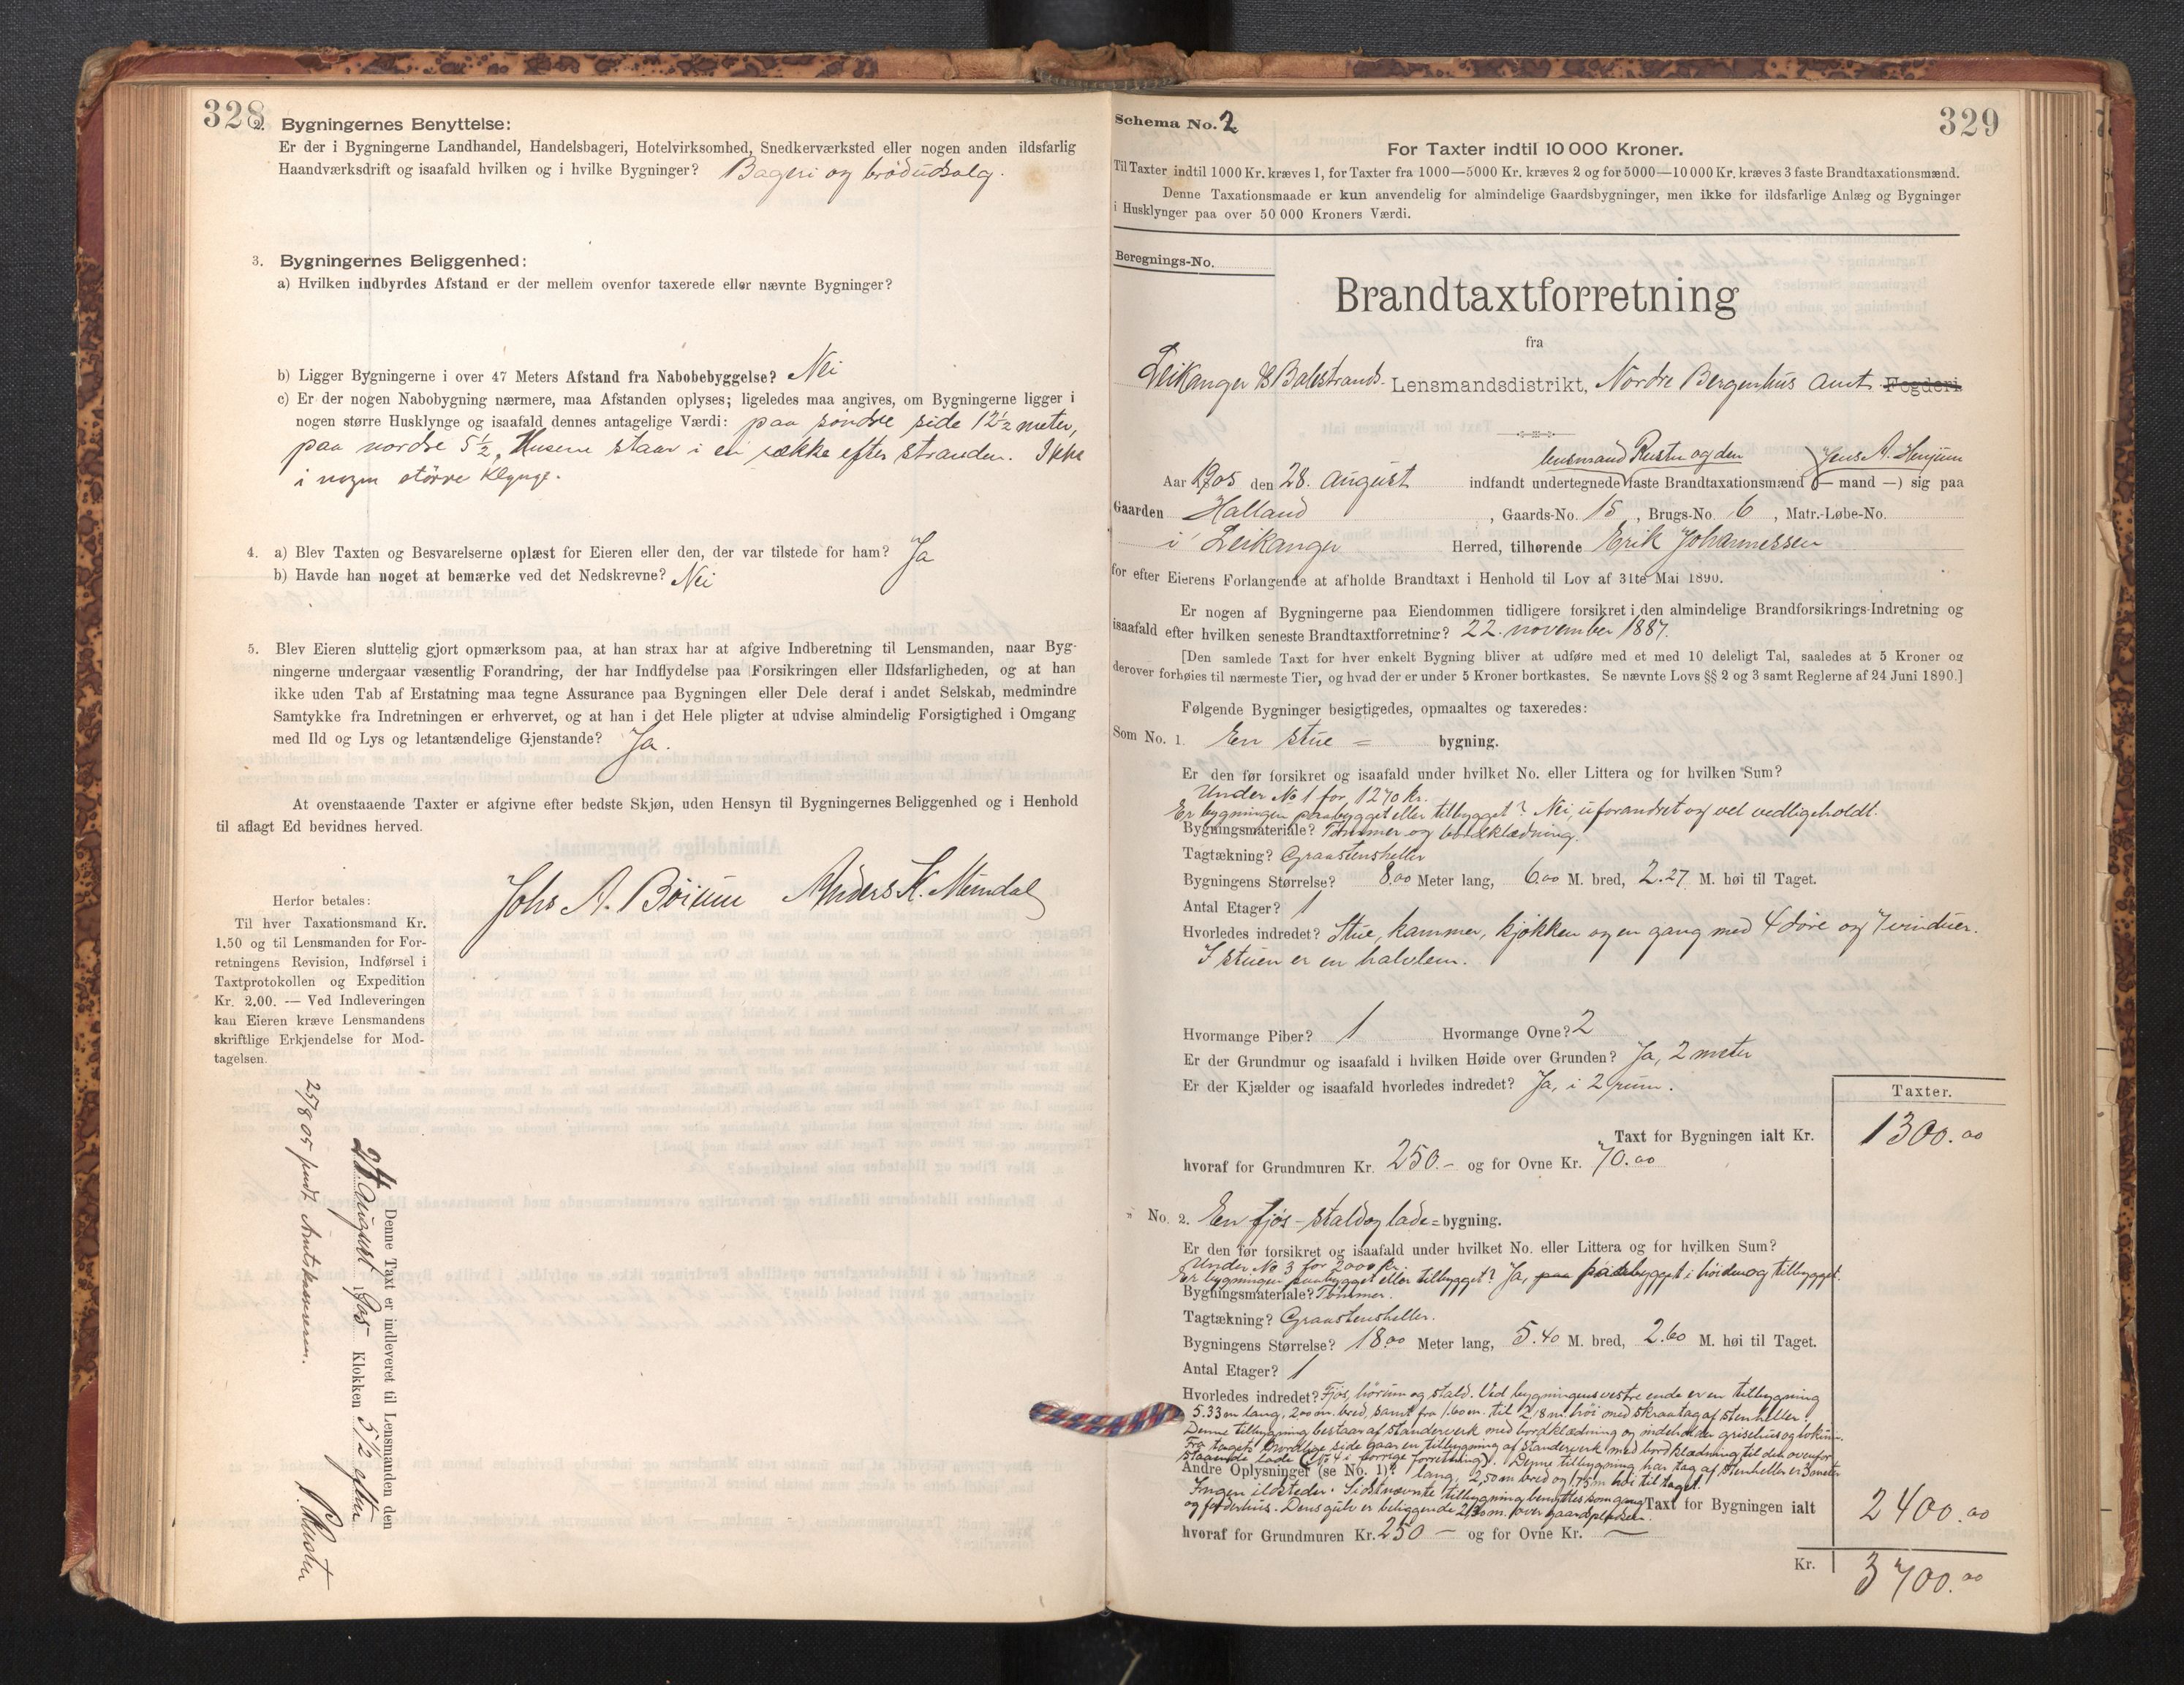 328
2. Bygningernes Benyttelse:
Er der i Bygningerne Landhandel, Handelsbageri, Hotelvirksomhed, Snedkerværksted eller nogen anden ildsfarlig
Haandværksdrift og isaafald hvilken og i hvilke Bygninger? Bageri og brødudsalg.
3. Bygningernes Beliggenhed:
a) Hvilken indbyrdes Afstand er der mellem ovenfor taxerede eller nævnte Bygninger?
b) Ligger Bygningerne i over 47 Meters Afstand fra Nabobebyggelse? Nei
c) Er der nogen Nabobygning nærmere, maa Afstanden oplyses; ligeledes maa angives, om Bygningerne ligger i
nogen større Husklynge og isaafald dennes antagelige Værdi: paa søndre side 12½ meter,
paa nordre 5½. Husene staar i en række efter stranden. Ikke
i nogen større Klynge.
4. a) Blev Taxten og Besvarelserne oplæst for Eieren eller den, der var tilstede for ham? Ja
b) Havde han noget at bemærke ved det Nedskrevne? Nei
5. Blev Eieren sluttelig gjort opmærksom paa, at han strax har at afgive Indberetning til Lensmanden, naar Byg-
ningerne undergaar væsentlig Forandring, der har Indflydelse paa Forsikringen eller Ildsfarligheden, og at han
ikke uden Tab af Erstatning maa tegne Assurance paa Bygningen eller Dele deraf i andet Selskab, medmindre
Samtykke fra Indretningen er erhvervet, og at han i det Hele pligter at udvise almindelig Forsigtighed i Omgang
med Ild og Lys og letantændelige Gjenstande? Ja.
At ovenstaaende Taxter er afgivne efter bedste Skjøn, uden Hensyn til Bygningernes Beliggenhed og i Henhold
til aflagt Ed bevidnes herved.
Johs A. Böium Anders K. Mundal
Herfor betales:
Til hver Taxationsmand Kr.
1.50 og til Lensmanden for For-
retningens Revision, Indførsel i
Taxtprotokollen og Expedition
Kr. 2.00. — Ved Indleveringen
kan Eieren kræve Lensmandens
skriftlige Erkjendelse for Mod-
tagelsen.
Denne Taxt er indleveret til Lensmanden den
24. August 1905 Klokken 5½ efterm.
P. Ruster
25/8 05 sendt Amtskassereren.
329
Schema No. 2
For Taxter indtil 10 000 Kroner.
Til Taxter indtil 1000 Kr. kræves 1, for Taxter fra 1000—5000 Kr. kræves 2 og for 5000—10000 Kr. kræves 3 faste Brandtaxationsmænd.
Denne Taxationsmaade er kun anvendelig for almindelige Gaardsbygninger, men ikke for ildsfarlige Anlæg og Bygninger
i Husklynger paa over 50 000 Kroners Værdi.
Beregnings-No.
Brandtaxtforretning
fra
Leikanger & Balestrands Lensmandsdistrikt, Nordre Bergenhus Amt. Fogderi
lensmand Ruster og den Jens A. Henjum
Aar 1905 den 28. august indfandt undertegnede faste Brandtaxationsmænd (— mand —) sig paa
Gaarden Halland, Gaards-No. 15, Brugs-No. 6, Matr.-Løbe-No.
i Leikanger Herred, tilhørende Erik Johannessen
for efter Eierens Forlangende at afholde Brandtaxt i Henhold til Lov af 31te Mai 1890.
Er nogen af Bygningerne paa Eiendommen tidligere forsikret i den almindelige Brandforsikrings-Indretning og
isaafald efter hvilken seneste Brandtaxtforretning? 22. november 1887.
[Den samlede Taxt for hver enkelt Bygning bliver at udføre med et med 10 deleligt Tal, saaledes at 5 Kroner og
derover forhøies til nærmeste Tier, og hvad der er under 5 Kroner bortkastes. Se nævnte Lovs §§ 2 og 3 samt Reglerne af 24 Juni 1890.]
Følgende Bygninger besigtigedes, opmaaltes og taxeredes:
Som No. 1. En stue = bygning.
Er den før forsikret og isaafald under hvilket No. eller Littera og for hvilken Sum?
Under No 1 for 1270 kr.
Er bygningen paabygget eller tilbygget? Nei, uforandret og vel vedligeholdt.
Bygningsmateriale? Tømmer og bordklædning.
Tagtækning? Graastensheller
Bygningens Størrelse? 8.00 Meter lang, 6.00 M. bred, 2.27 M. høi til Taget.
Antal Etager? 1
Hvorledes indredet? Stue, kammer, kjøkken og en gang med 4 døre og 7 vinduer.
I stuen er en halvlem.
Hvormange Piber? 1 Hvormange Ovne? 2
Er der Grundmur og isaafald i hvilken Høide over Grunden? Ja, 2 meter
Er der Kjælder og isaafald hvorledes indredet? Ja, i 2 rum.
Taxter.
Taxt for Bygningen ialt Kr. 1300.00
hvoraf for Grundmuren Kr. 250.- og for Ovne Kr. 70.00
" No. 2. En fjøs- stald og lade = bygning.
Er den før forsikret og isaafald under hvilket No. eller Littera og for hvilken Sum?
Under No 3 for 2000 kr.
Er bygningen paabygget eller tilbygget? Ja, paa paabygget i høiden og tilbygget.
Bygningsmateriale? Tømmer.
Tagtækning? Graastensheller.
Bygningens Størrelse? 18.00 Meter lang, 5.40 M. bred, 2.60 M. høi til Taget.
Antal Etager? 1
Hvorledes indredet? Fjøs, hørum og stald. Ved bygningens vestre ende er en tilbygning
5.33 m lang, 2.00 m. bred, samt fra 1.60 m. til 2,18 m. høi med skraatag af stenheller.
Denne tilbygning bestaar af standerverk med bordklædning og indeholder grisehus og
Fra tagets nordlige side gaar en tilbygning af standerverk med bordklædning til den ovenfor
staaende lade (No 4 i forrige forretning). Denne tilbygning har tag af stenheller er 3 meter
Andre Oplysninger (se No. 1)? lang, 2,50 m bred og 1,75 m høi til taget.
Ingen ildsteder. Sidstnævnte tilbygning benyttes som gang Taxt for Bygningen ialt 2400.00
og foderhus. Dens gulv er beliggende 2,30 m. over gaardspladsen.
hvoraf for Grundmuren Kr. 250 — og for Ovne Kr. —
Kr. 3700.00